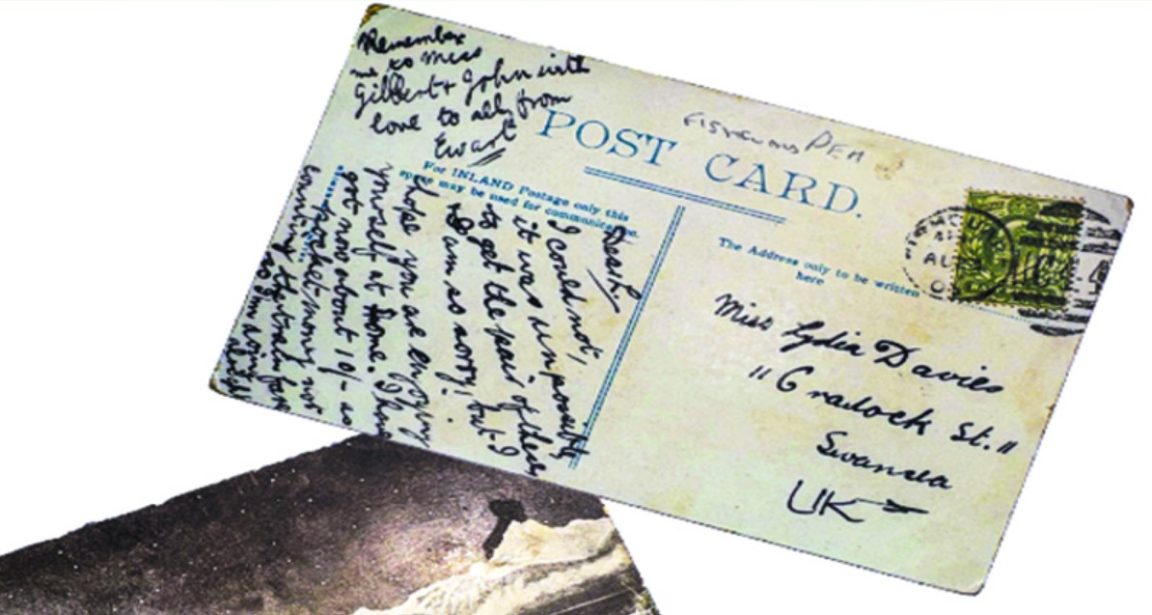 Remember
me to Miss
Gilbert & John with
love to all from
Ewart
POST CARD.
For INLAND Postage only this
space may be used for communication.
The Address only to be written
here
Dear L
I could not,
it was impossible
to get the pair of these
I am so sorry! but I
hope you are enjoying
yourself at home. I have
got now about 10/- as
pocket money not
counting the train fare
so I'm doing
alright
Miss Lydia Davies
"Cradock St."
Swansea
UK